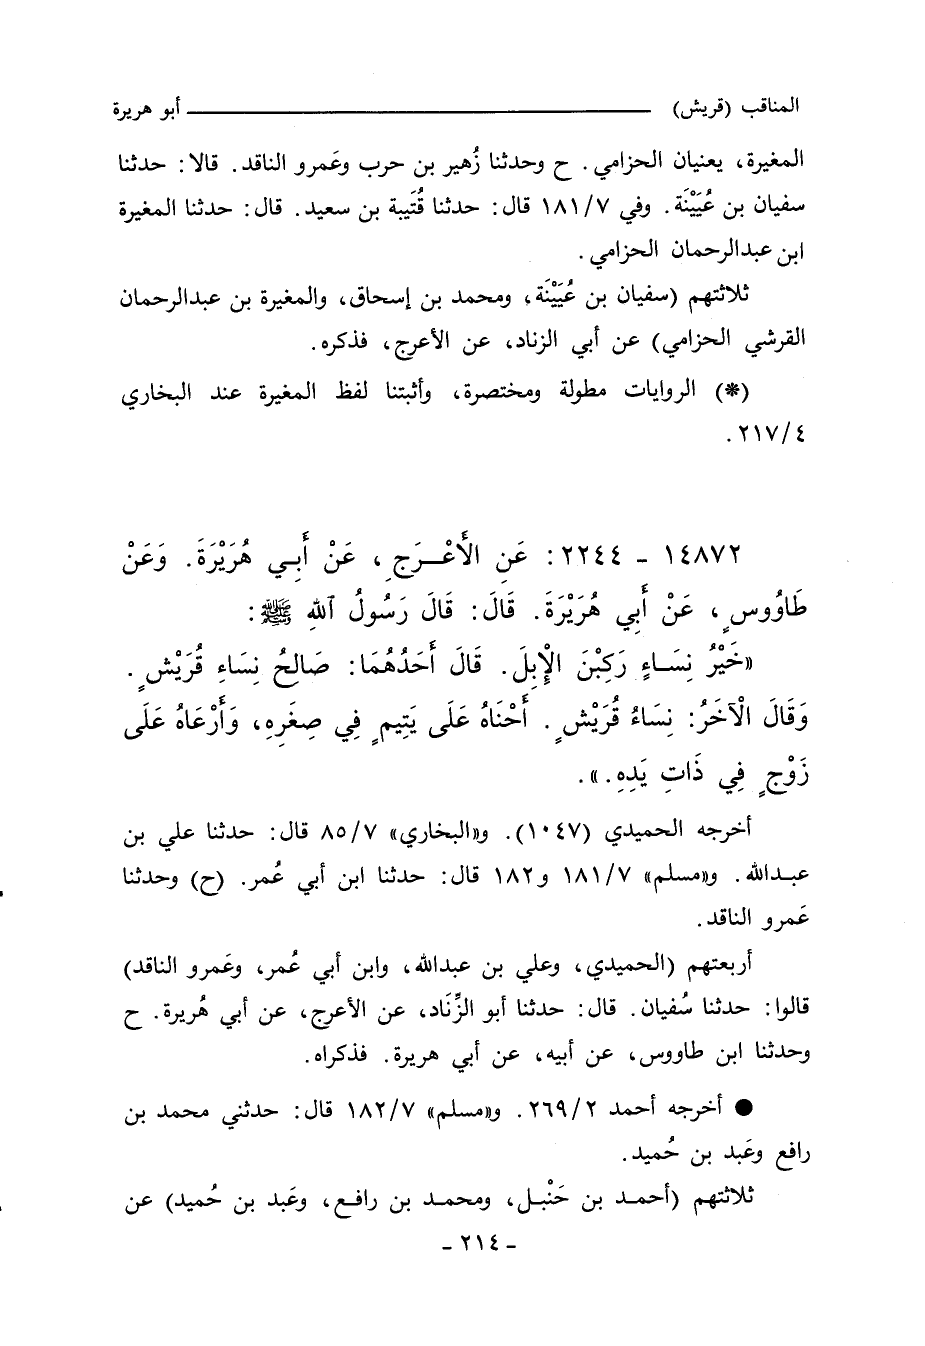 المناقب (قريش) ــــــــــ أبو هريرة
المغيرة، يعنيان الحزامي. ح وحدثنا زُهير بن حرب وعَمرو الناقد. قالا: حدثنا
سفيان بن عُيَيْنَة. وفي ٧/ ١٨١ قال: حدثنا قُتَيبة بن سعيد. قال: حدثنا المغيرة
ابن عبدالرحمان الحزامي.
ثلاثتهم (سفيان بن عُيَيْنَة، ومحمد بن إسحاق، والمغيرة بن عبدالرحمان
القرشي الحزامي) عن أبي الزناد، عن الأعرج، فذكره.
(*) الروايات مطولة ومختصرة، وأثبتنا لفظ المغيرة عند البخاري
٤/ ٢١٧.
١٤٨٧٢ - ٢٢٤٤: عَنِ الْأَعْرَجِ، عَنْ أَبِي هُرَيْرَةَ. وَعَنْ
طَاوُوسٍ، عَنْ أَبِي هُرَيْرَةَ. قَالَ: قَالَ رَسُولُ اللهِ ﷺ:
«خَيْرُ نِسَاءٍ رَكِبْنَ الْإِبِلَ. قَالَ أَحَدُهُمَا: صَالِحُ نِسَاءِ قُرَيْشٍ.
وَقَالَ الْآخَرُ: نِسَاءُ قُرَيْشٍ. أَحْنَاهُ عَلَى يَتِيمٍ فِي صِغَرِهِ، وَأَرْعَاهُ عَلَى
زَوْجٍ فِي ذَاتِ يَدِهِ.».
أخرجه الحميدي (١٠٤٧). و«البخاري» ٧/ ٨٥ قال: حدثنا علي بن
عبدالله. و«مسلم» ٧/ ١٨١ و١٨٢ قال: حدثنا ابن أبي عُمر. (ح) وحدثنا
عَمرو الناقد.
أربعتهم (الحميدي، وعلي بن عبدالله، وابن أبي عُمر، وعَمرو الناقد)
قالوا: حدثنا سُفيان. قال: حدثنا أبو الزِّنَاد، عن الأعرج، عن أبي هُريرة. ح
وحدثنا ابن طاووس، عن أبيه، عن أبي هريرة. فذكراه.
● أخرجه أحمد ٢/ ٢٦٩. و«مسلم» ٧/ ١٨٢ قال: حدثني محمد بن
رافع وعَبد بن حُميد.
ثلاثتهم (أحمد بن حَنْبل، ومحمد بن رافع، وعَبد بن حُميد) عن
- ٢١٤ -